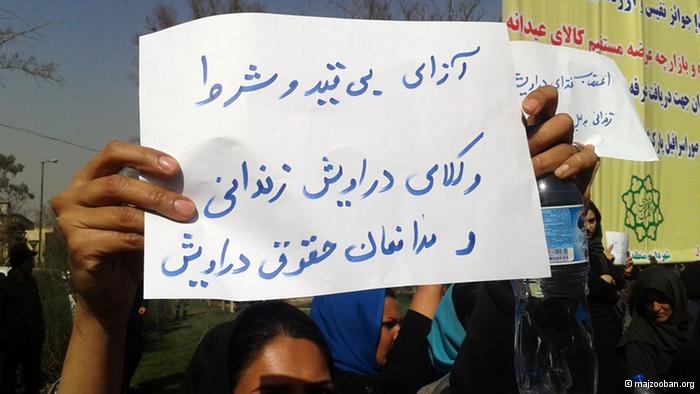 آزای بی قید و شرط
وکلای دراویش زندانی
و مدافعان حقوق دراویش
اعتصاب غذای دراویش
زندانی به
جوائز نفیس و
و بازارچه عرضه مستقیم کالای عیدانه
جهت دریافت غرفه
صور اسرافیل
منطقه
© majzooban.org